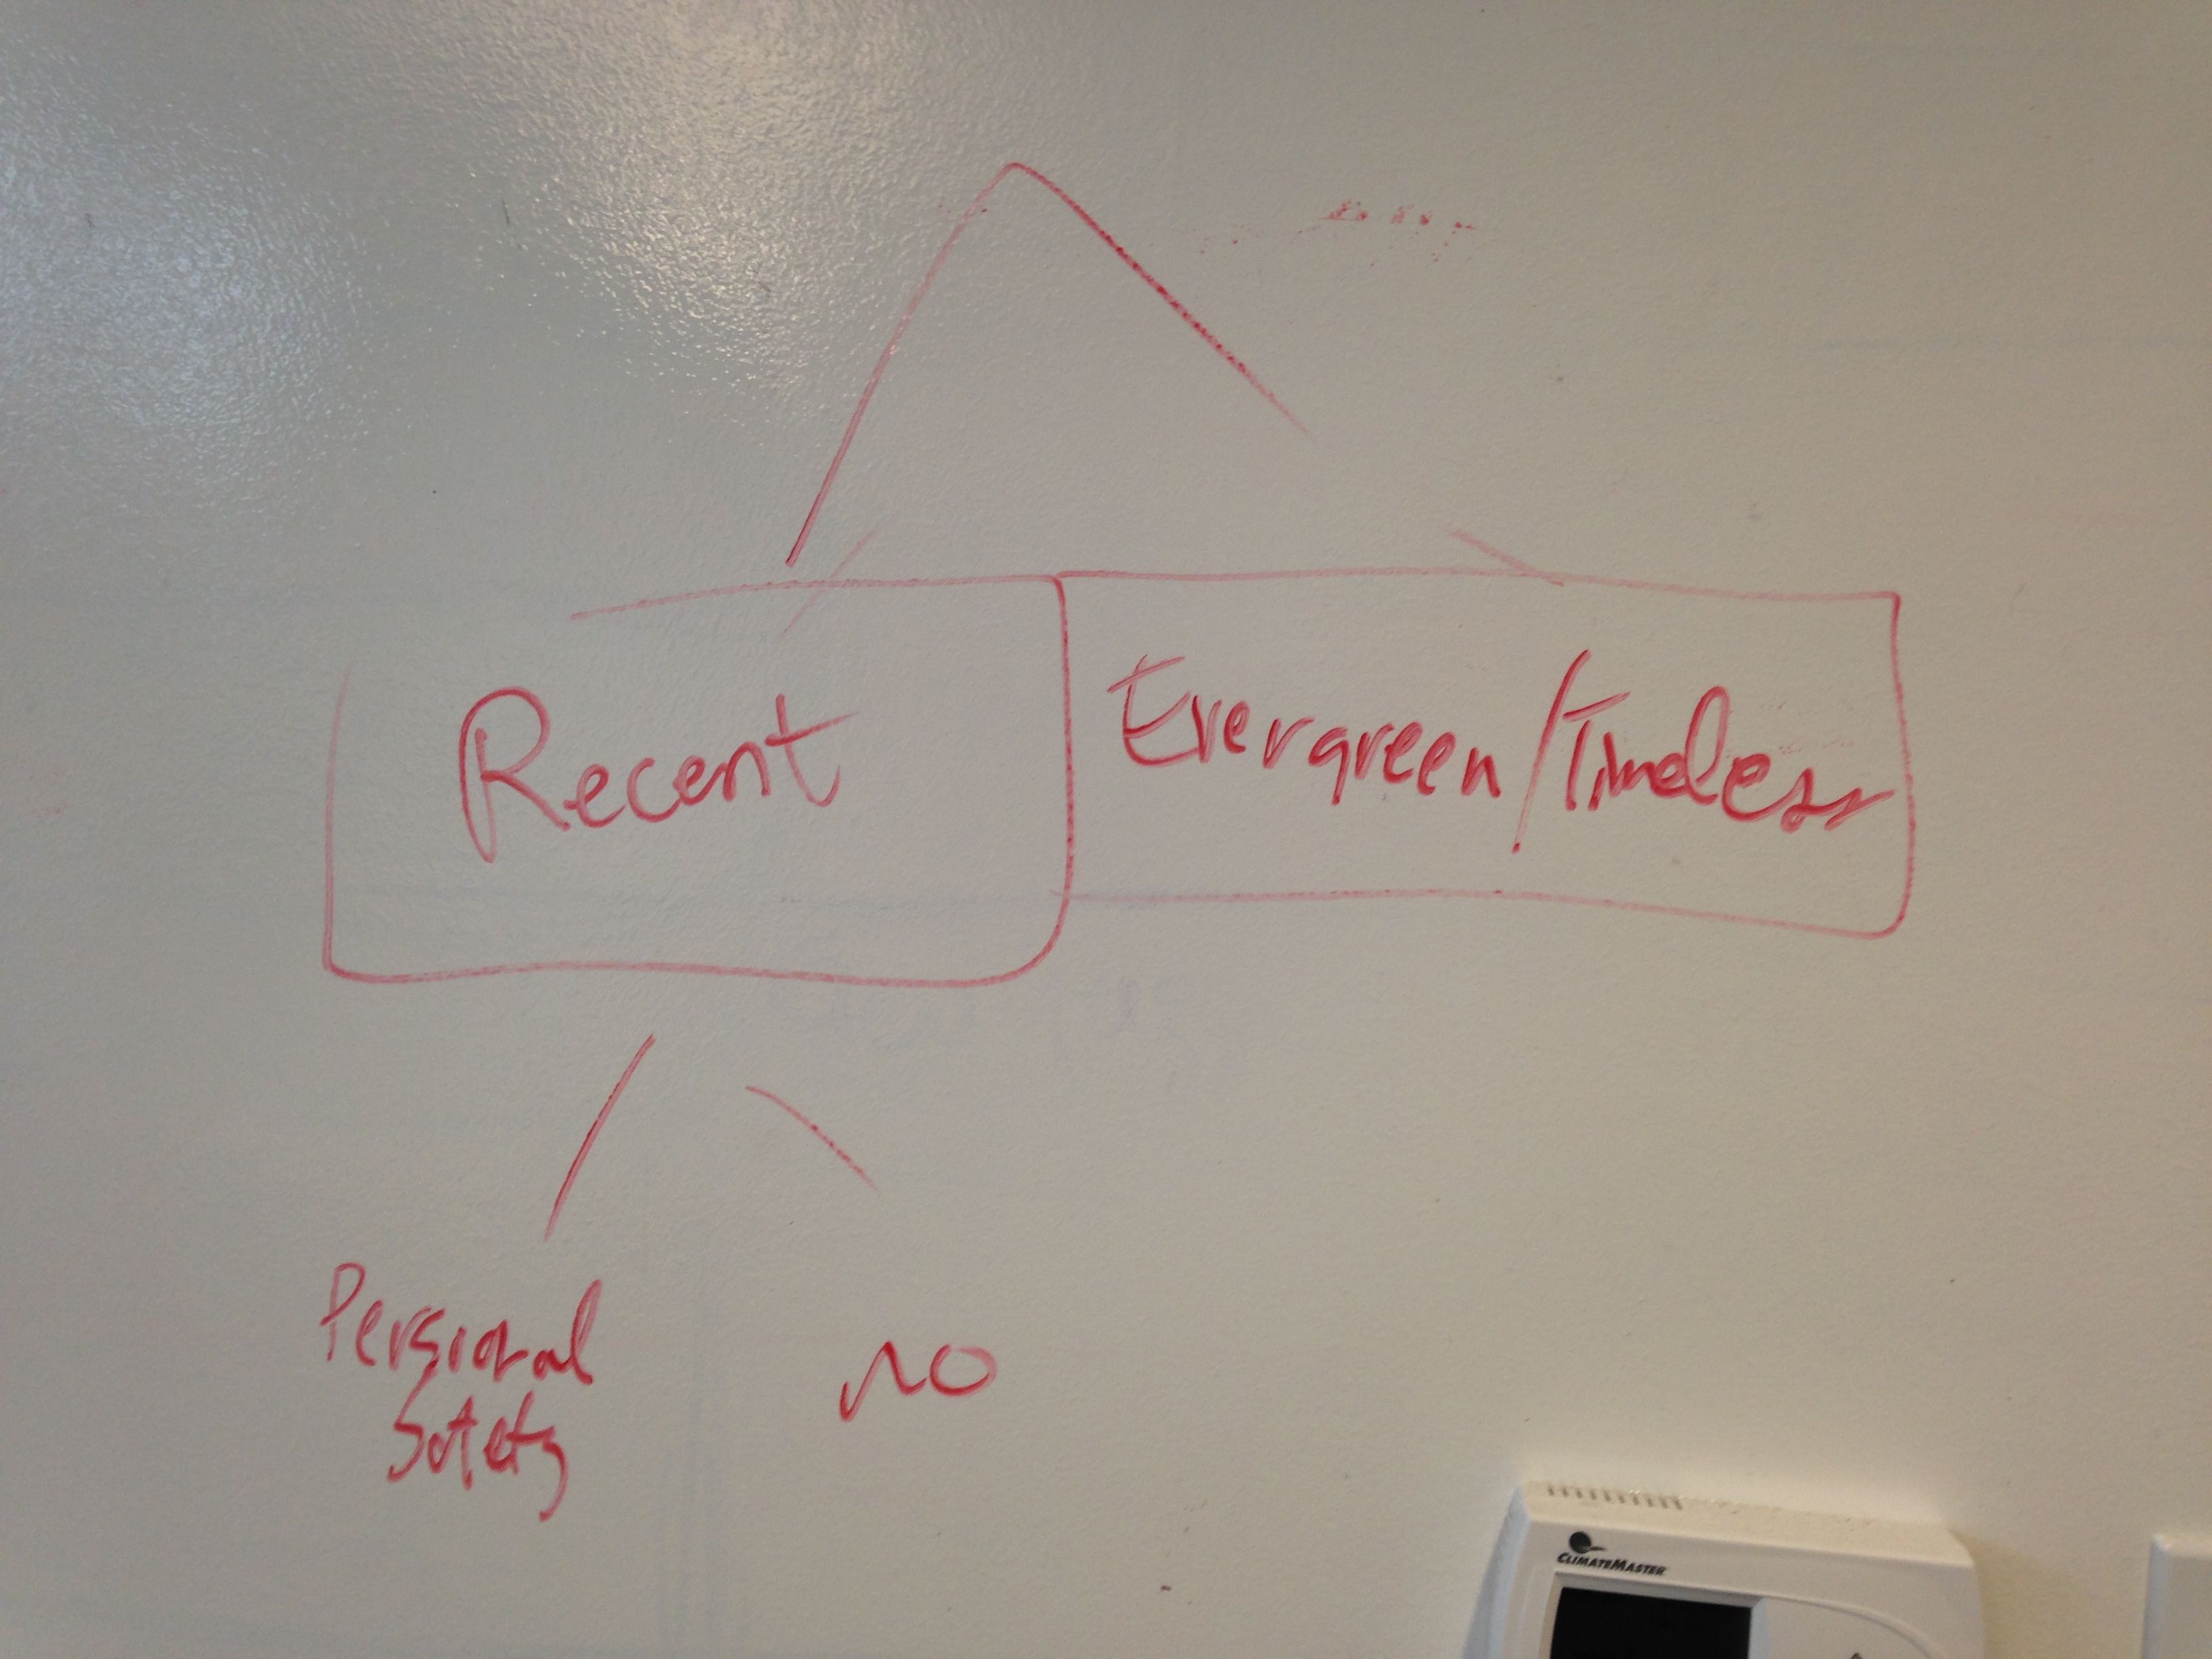 Recent
Evergreen/Timeless
Personal
Safety
NO
CLIMATEMASTER